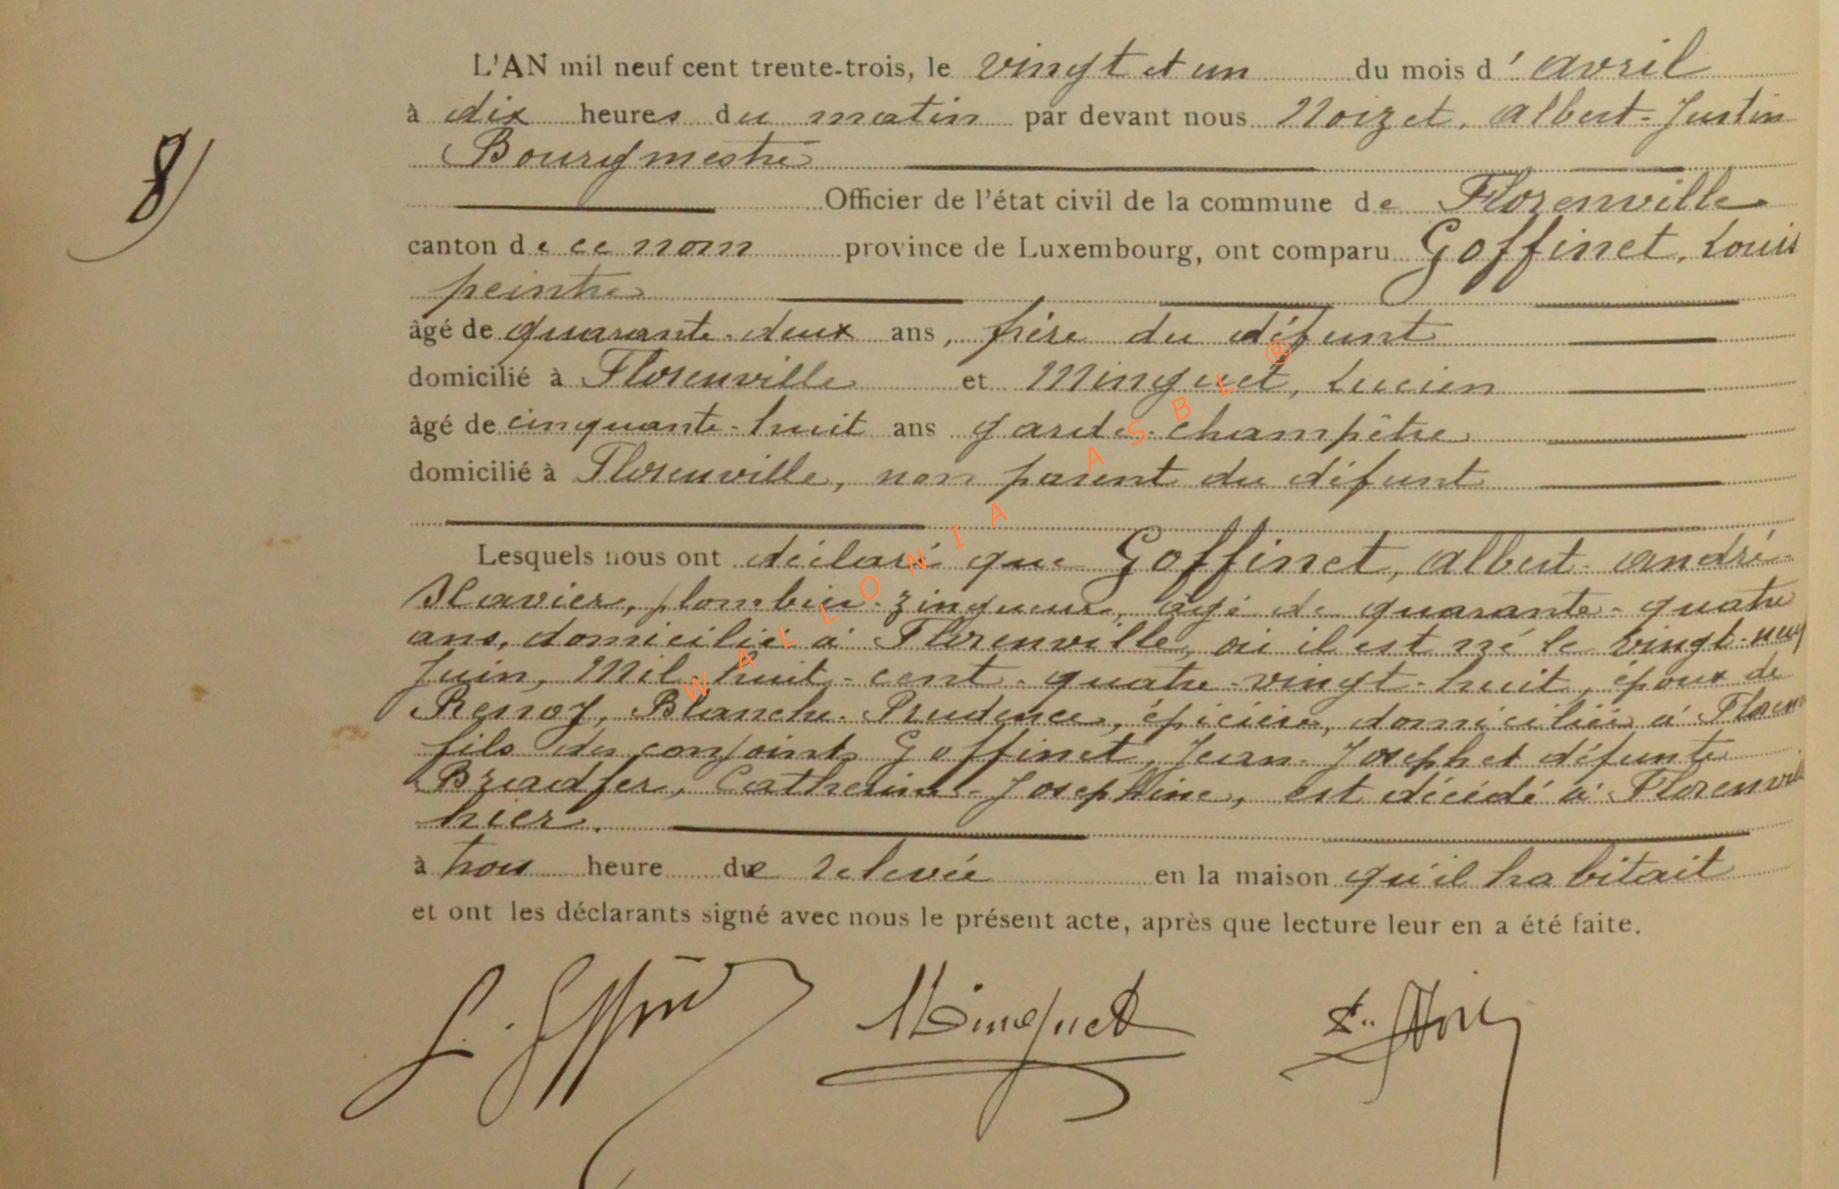 L'AN mil neuf cent trente-trois, le vingt et un du mois d'avril
à dix heures du matin par devant nous Noizet, Albert-Justin
Bourgmestre
8)
Officier de l'état civil de la commune de Florenville
canton de ce nom province de Luxembourg, ont comparu Goffinet, Louis
peintre
âgé de quarante-deux ans, frère du défunt
domicilié à Florenville et Minguet, Lucien
âgé de cinquante-huit ans garde-champêtre
domicilié à Florenville, non parent du défunt
Lesquels nous ont déclaré que Goffinet, Albert-André-
Xavier, plombier-zingueur, âgé de quarante-quatre
ans, domicilié à Florenville, où il est né le vingt-neuf
Juin, Mil-huit-cent-quatre-vingt-huit, époux de
Renoy, Blanche-Prudence, épicière, domiciliée à Floren
fils des conjoints Goffinet, Jean-Joseph et défunte
Bradfer, Catherine-Josephine, est décédé à Florenvil
hier.
à trois heure de relevée en la maison qu'il habitait
et ont les déclarants signé avec nous le présent acte, après que lecture leur en a été faite.
Minguet
WALLONIA ASBL ®